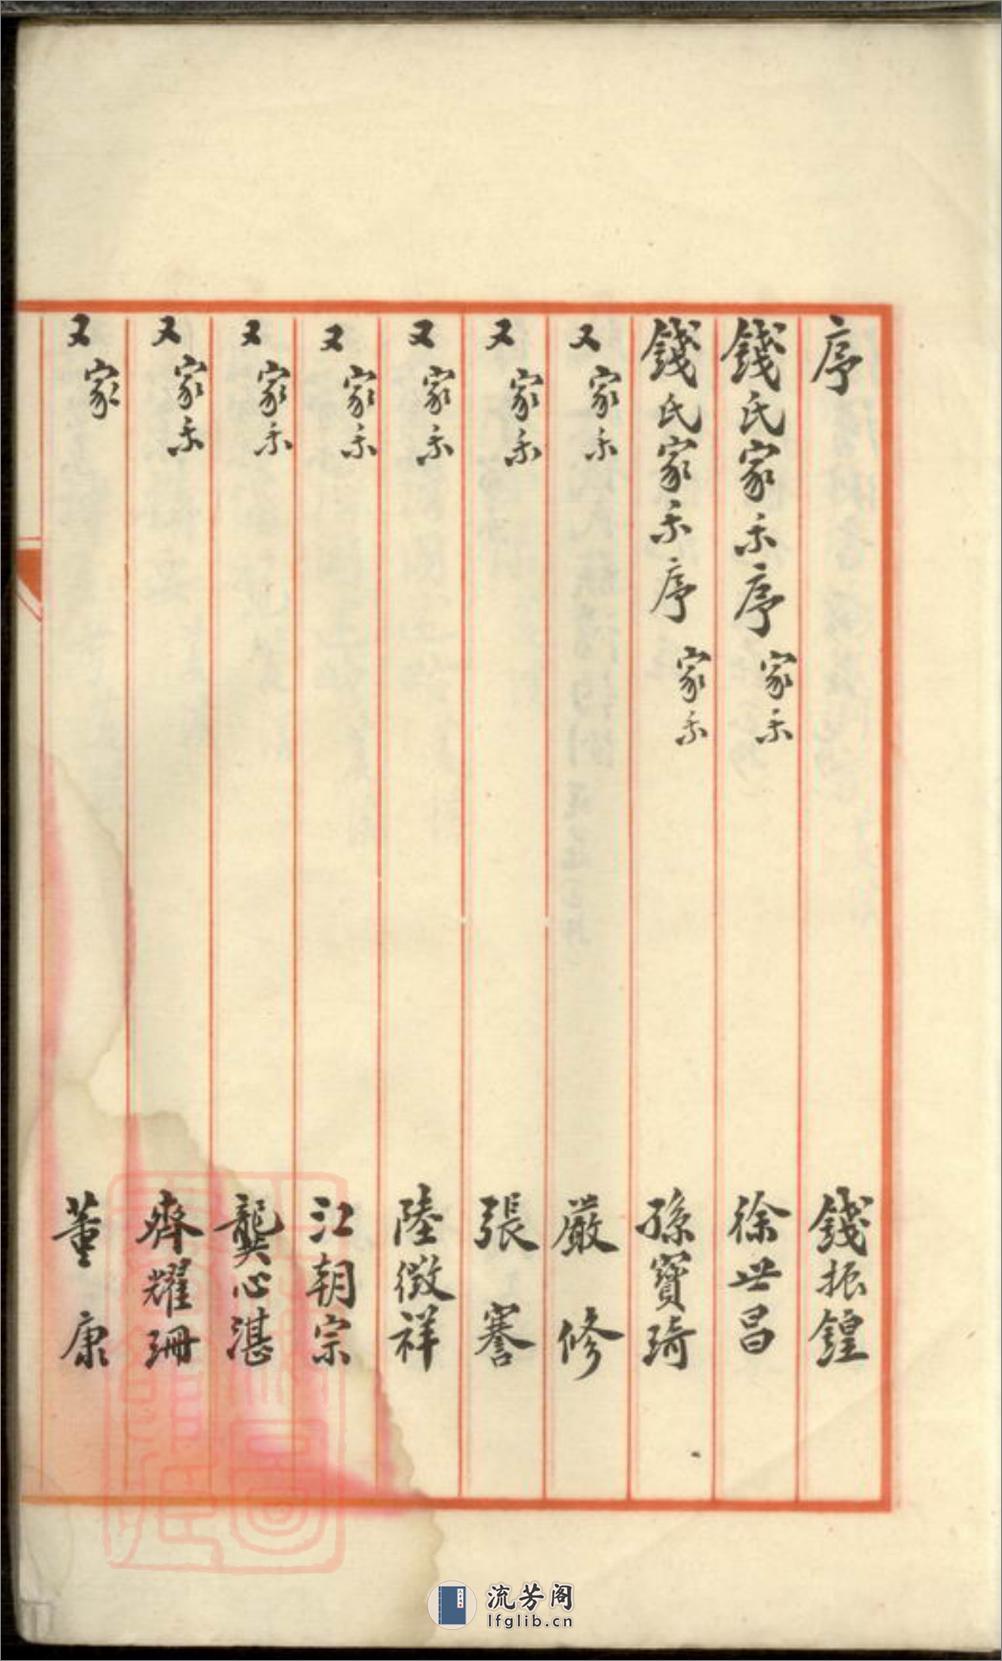 序 錢振鍠
錢氏家乘序 家乘 徐世昌
錢氏家乘序 家乘 孫寶琦
又 家乘 嚴修
又 家乘 張謇
又 家乘 陸徵祥
又 家乘 江朝宗
又 家乘 龔心湛
又 家乘 齊耀珊
又 家 董康
流芳阁
lfglib.cn